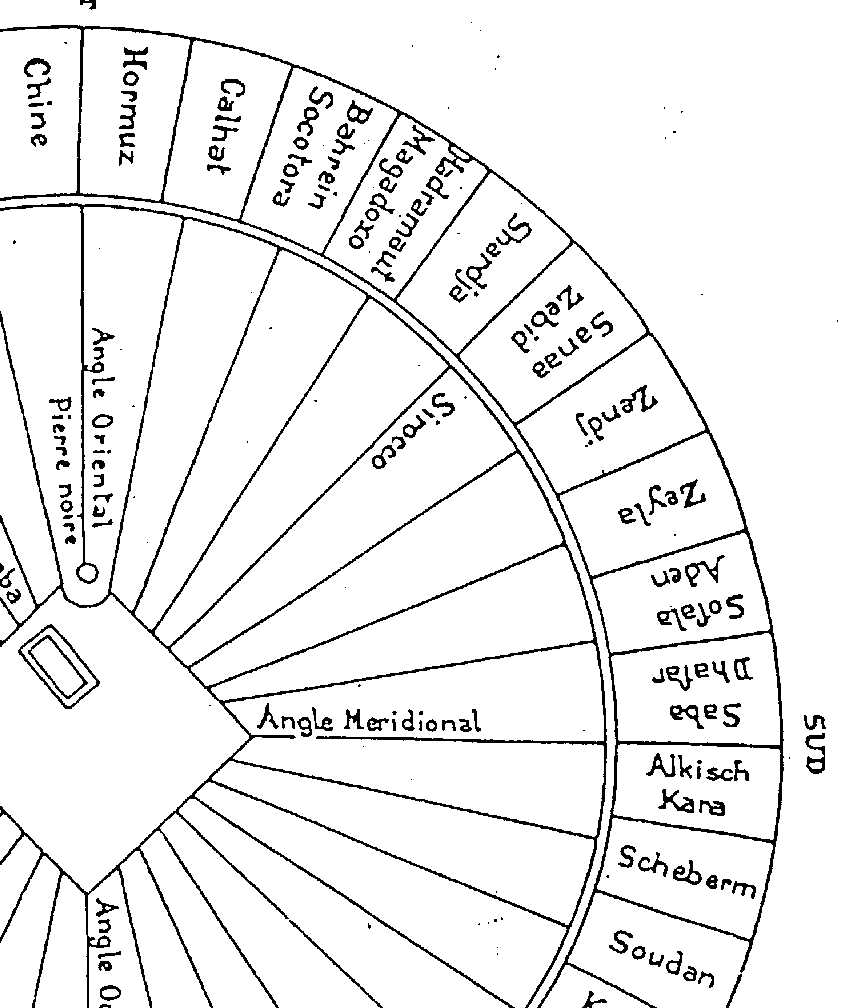 Chine
Hormuz
Calhat
Bahrein
Socotora
Hadramaut
Magadoxo
Shardja
Sanaa
Zebid
Zendj
Zeyla
Aden
Sofala
Dhafar
Saba
SUD
Alkisch
Kara
Scheberm
Soudan
Angle Oriental
Pierre noire
Sirocco
Angle Meridional
Angle